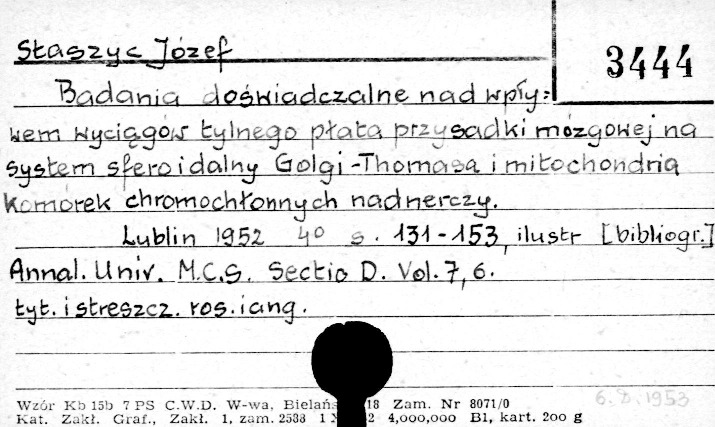 Staszyc Józef
3444
Badania doświadczalne nad wpły=
wem wyciągów tylnego płata przysadki mózgowej na
system sferoidalny Golgi-Thomasa i mitochondria
komórek chromochłonnych nadnerczy.
Lublin 1952 4° s. 131-153, ilustr [bibliogr.]
Annal. Univ. M.C.S. Sectio D. Vol. 7, 6.
tyt. i streszcz. ros. i ang.
6. D. 1953
Wzór Kb 15b 7 PS C.W.D. W-wa, Bielańs 18 Zam. Nr 8071/0
Kat. Zakł. Graf., Zakł. 1, zam. 2538 1 2 4,000,000 B1, kart. 200 g